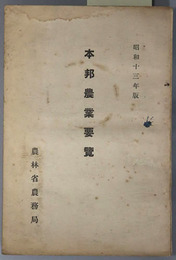 昭和十三年版
本邦農業要覧
農林省農務局